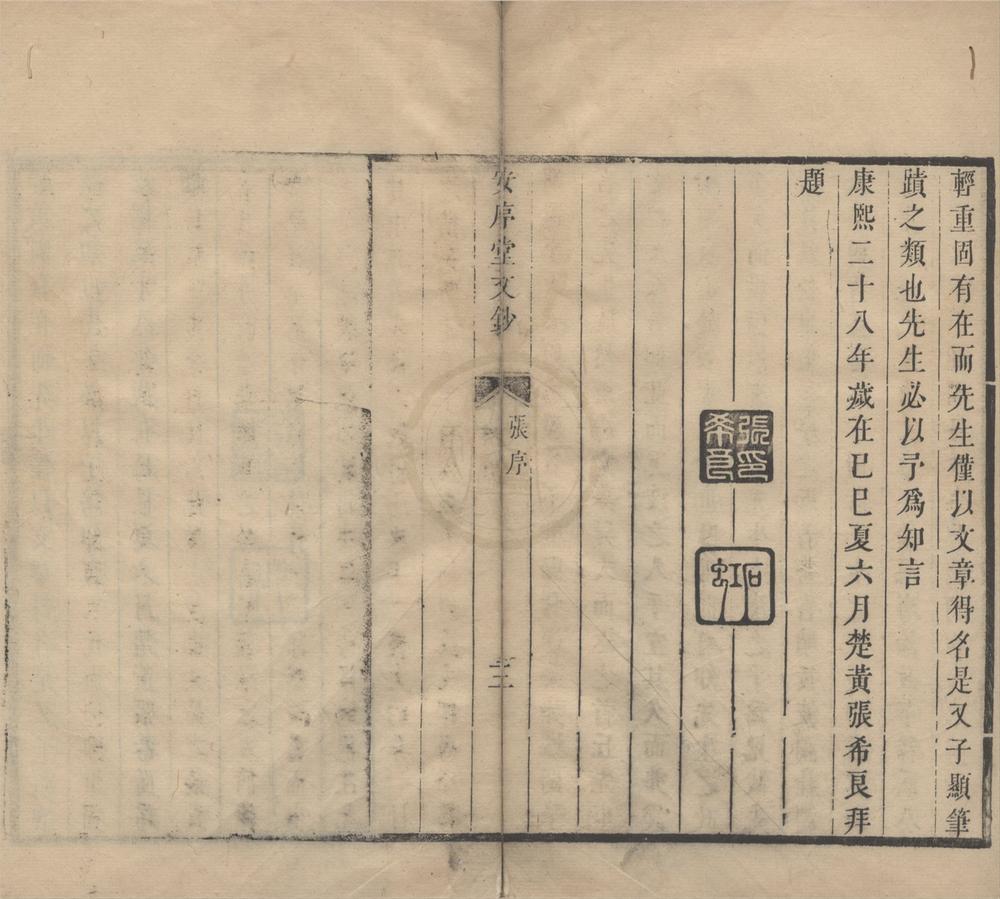 輕重固有在而先生僅以文章得名是又子顯筆
蹟之類也先生必以予爲知言
康熙二十八年歲在已巳夏六月楚黃張希良拜
題
張希良印
石虹
安序堂文鈔
張序
三